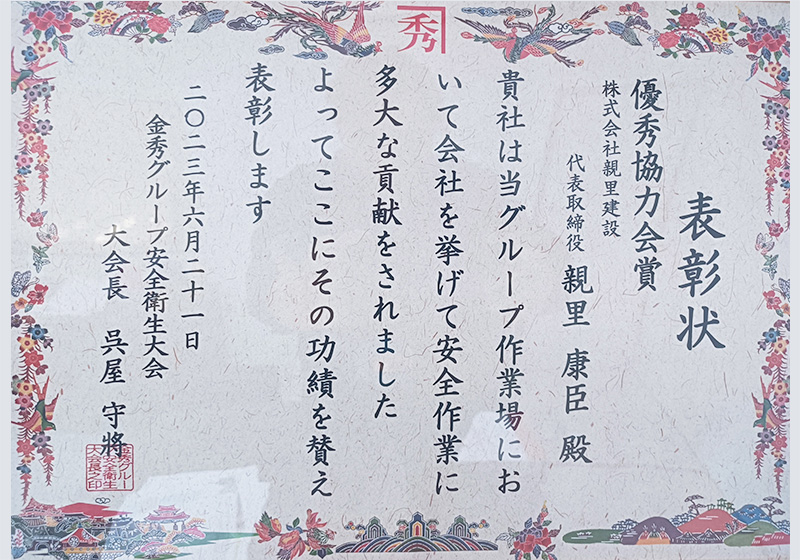 秀
表彰状
優秀協力会賞
株式会社親里建設
代表取締役 親里 康臣 殿
貴社は当グループ作業場にお
いて会社を挙げて安全作業に
多大な貢献をされました
よってここにその功績を賛え
表彰します
二〇二三年六月二十一日
金秀グループ安全衛生大会
大会長 呉屋 守將
金秀グルー
安全衛生
大会長之印